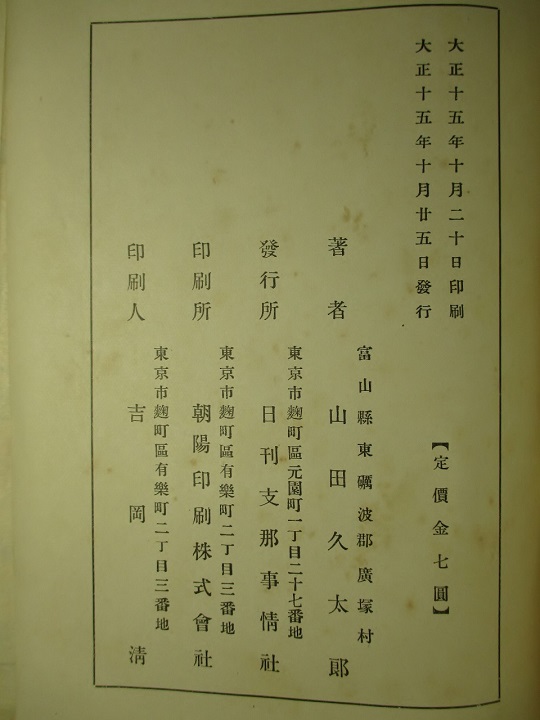 大正十五年十月二十日印刷
大正十五年十月廿五日發行
【定價金七圓】
富山縣東礪波郡廣塚村
著者 山田久太郎
東京市麴町區元園町一丁目二十七番地
發行所 日刊支那事情社
東京市麴町區有樂町二丁目三番地
印刷所 朝陽印刷株式會社
東京市麴町區有樂町二丁目三番地
印刷人 吉岡淸